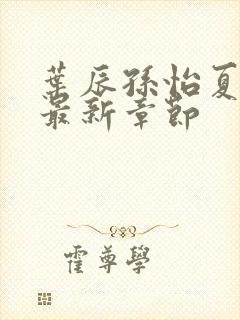 葉辰孫怡夏
最新章節
霍尊學